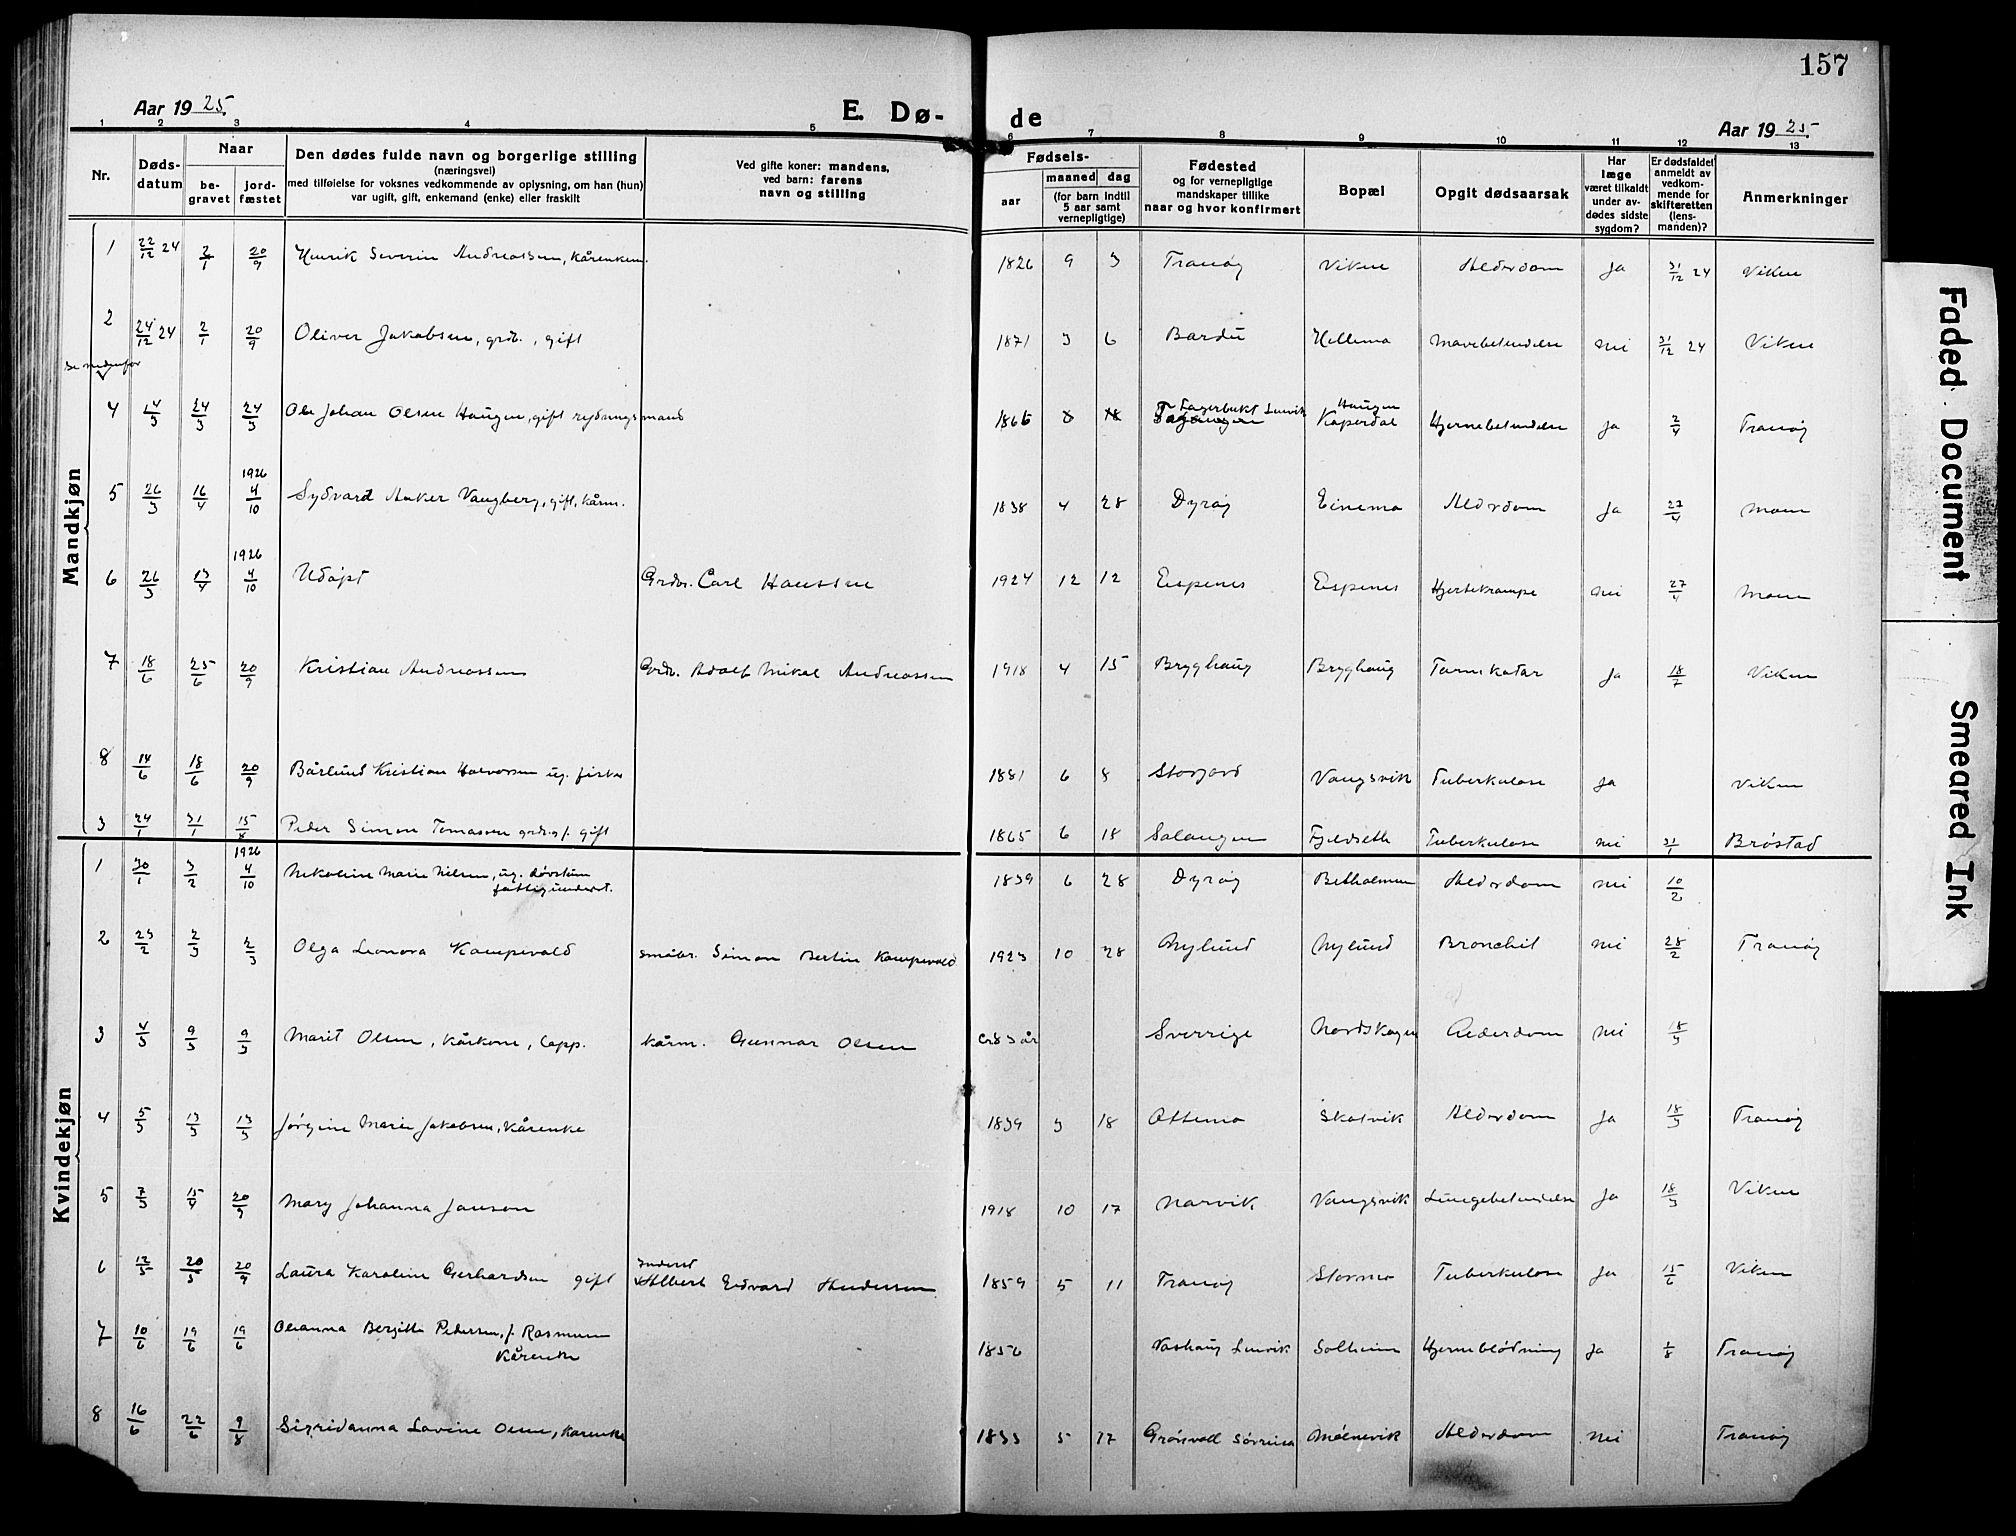 157
Aar 1925.
E. Dø-
de
Aar 1925
1 2 3 4 5 6 7 8 9 10 11 12 13
Nr.
Døds-
datum
Naar
be-
gravet
jord-
fæstet
Den dødes fulde navn og borgerlige stilling
(næringsvei)
med tilføielse for voksnes vedkommende av oplysning, om han (hun)
var ugift, gift, enkemand (enke) eller fraskilt
Ved gifte koner: mandens,
ved barn: farens
navn og stilling
Fødsels-
aar
maaned dag
(for barn indtil
5 aar samt
vernepligtige)
Fødested
og for vernepligtige
mandskaper tillike
naar og hvor konfirmert
Bopæl
Opgit dødsaarsak
Har
læge
været tilkaldt
under av-
dødes sidste
sygdom?
Er dødsfaldet
anmeldt av
vedkom-
mende for
skifteretten
(lens-
manden)?
Anmerkninger
Mandkjøn
1 22/12 24 2/1 20/9 Henrik Severin Andreassen, Kårenkem. 1826 9 3 Tranøy Viken Alderdom Ja 31/12 24 Viken
2 24/12 24 2/1 20/9 Oliver Jakobsen, grdb., gift 1871 3 6 Bardu Hellemo Mavebetendelse nei 31/12 24 Viken
se nedenfor
4 14/3 24/3 24/3 Ole Johan Olsen Haugen, gift rydningsmand 1866 8 18 Fagerbukt Lenvik Haugen Kaperdal Hjernebetendelse Ja 2/4 Tranøy
5 26/3 16/4 1926 4/10 Sydvard Anker Vangberg, gift, kårm. 1838 4 28 Dyrøy Einemo Alderdom Ja 27/4 Moen
6 26/3 13/4 1926 4/10 Udøpt Grdbr. Carl Hanssen 1924 12 12 Espenes Espenes Hjertekrampe nei 27/4 Moen
7 18/6 25/6 20/9 Kristian Andreassen Grdb. Adolf Mikal Andreassen 1918 4 15 Brygghaug Brygghaug Tarmkatar Ja 18/7 Viken
8 14/6 18/6 20/9 Bårlund Kristian Halvorsen ug. fisker 1881 6 8 Storjord Vangsvik Tuberkulose Ja Viken
3 24/1 31/1 15/8 Peder Simon Tomassen grdb. og f. gift 1865 6 18 Salangen Fjeldseth Tuberkulose nei 31/1 Brøstad
Kvindekjøn
1 30/1 3/2 1926 4/10 Nikoline Marie Nilsen, ug. døvstum
fattigunderst. 1839 6 28 Dyrøy Betholmen Alderdom nei 10/2
2 23/2 2/3 2/3 Olga Leonora Kampevold småbr. Simon Bertin Kampevold 1923 10 28 Nylund Nylund Bronchit nei 28/2 Tranøy
3 4/3 9/3 9/3 Marit Olsen, Kårkone, Lapp. Kårm. Gunnar Olsen ca 83 år Sverrige Nordskogen Alderdom nei 18/3
4 5/3 13/3 13/3 Jørgine Marie Jakobsen, Kårenke 1839 3 18 Ottemo Skatvik Alderdom Ja 18/3 Tranøy
5 7/3 15/4 20/9 Mary Johanna Janson 1918 10 17 Narvik Vangsvik Lungebetendelse Ja 18/3 Viken
6 12/5 20/5 20/9 Laura Karoline Gerhardsen gift Inderst Albert Edvard 1859 5 11 Tranøy Stormo Tuberkulose Ja 15/6 Viken
7 10/6 19/6 19/6 Oleanna Bergitte Pedersen, f. Rasmussen
Kårenke 1856 Vashaug Lenvik Solheim Hjerneblødning Ja 1/8 Tranøy
8 16/6 22/6 9/8 Sigridanna Lovine Olsen, Kårenke 1833 5 17 Grønvoll Sørreisa Alderdom nei Tranøy
Faded Document
Smeared Ink